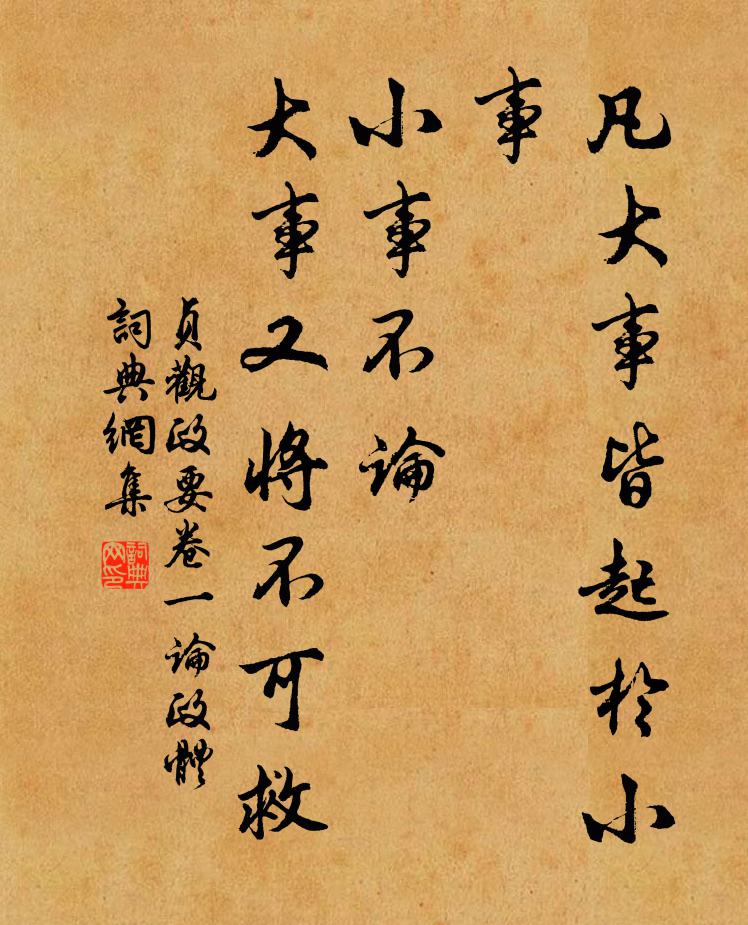 凡大事皆起於小
事
小事不論
大事又將不可救
貞觀政要卷一論政體
詞典網集
詞典
網印